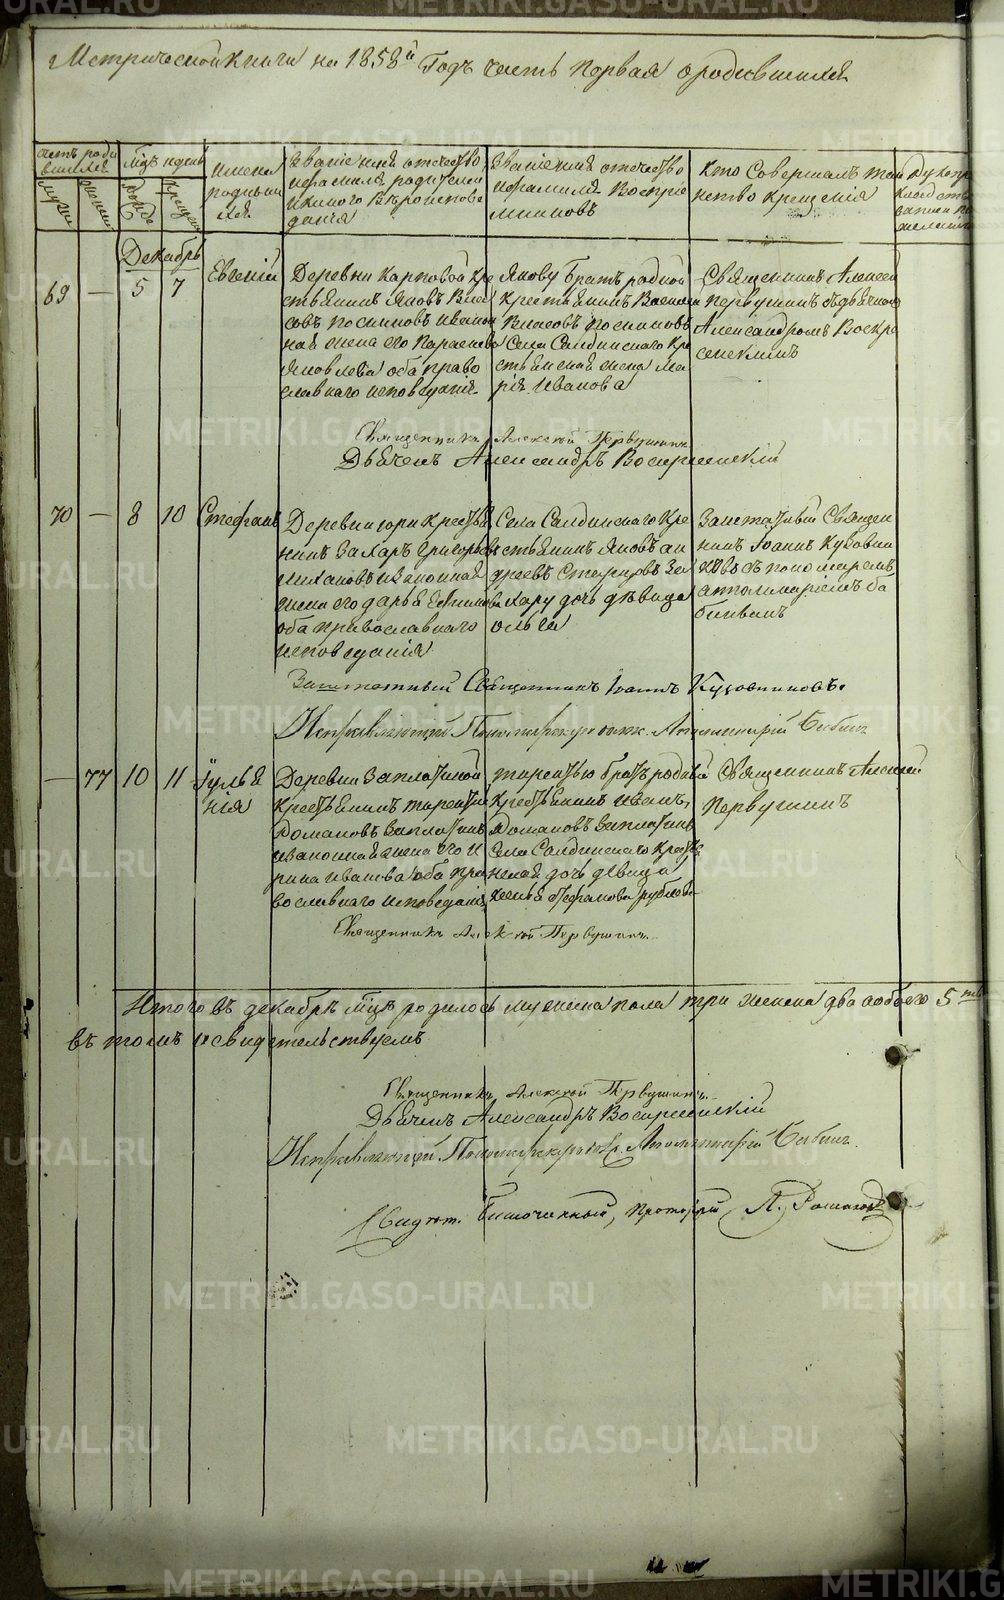 METRIKI.GASO-URAL.RU
Метрической книги на 1858й Годъ часть первая о родившихся
Счетъ роди
вшихся
Мужск
Женск
Мцъ и день
Рожде
Крещен
имена
родивши
хся
Званіе имя отчество
и фамилія родителей
и какого Вѣроиспове
данія
Званіе имя отчество
и фамилія Воспрiе
мниковъ
Кто Совершалъ таи
нство крещенія
Рукопр
Декабрь
69 — 5 7 Евгеній
Деревни Карповой Кре
стьянинъ Яковъ Влас
совъ и законная
жена его Параскева
Яковлева оба право
славнаго исповѣданія
Якову братъ родной
крестьянинъ
Власовъ
Села Салдинскаго Кре
стьянская жена Ма
рія Иванова
Священникъ Алексей
Первушинъ съ дьячкомъ
Александромъ Воскре
сенскимъ
Священникъ Алексѣй Первушинъ
Дьячекъ Александръ Воскресенскій
70 — 8 10 Стефанъ
Деревни Крестья
нинъ Захаръ Григорьевъ
и законная
жена его Дарья Екимова
оба православнаго
исповѣданія
Села Салдинскаго Кре
стьянинъ Яковъ ан
дреевъ За
хару дочь дѣвица
ольга
Заштатный Священ
никъ Іоаннъ Кузовни
ковъ съ пономаремъ
аполинаріемъ ба
бинымъ
Заштатный Священникъ Іоаннъ Кузовниковъ.
Исправляющій Пономарскую Аполинарій Бабинъ
— 77 10 11 Іуліа
нія
Деревни Заплатиной
крестьянинъ терентій
Домановъ Заплатинъ
и законная жена его И
рина иванова оба пра
вославнаго исповеданія
терентью братъ родный
крестьянинъ иванъ
Домановъ Заплатинъ
Села Салдинскаго крестья
нская дочь девица
Стефанова рублева
Священникъ Алексей
Первушинъ
Священникъ Алексѣй Первушинъ.
Итого въ декабрѣ мцѣ родилось мужеска пола три женска два а обоего 5
въ томъ и свидетельствуемъ
Священникъ Алексѣй Первушинъ.
Дьячекъ Александръ Воскресенскій
Исправляющій Пономарскую Аполинарій Бабинъ.
Свидѣт. Благочинный, протоіерей А.